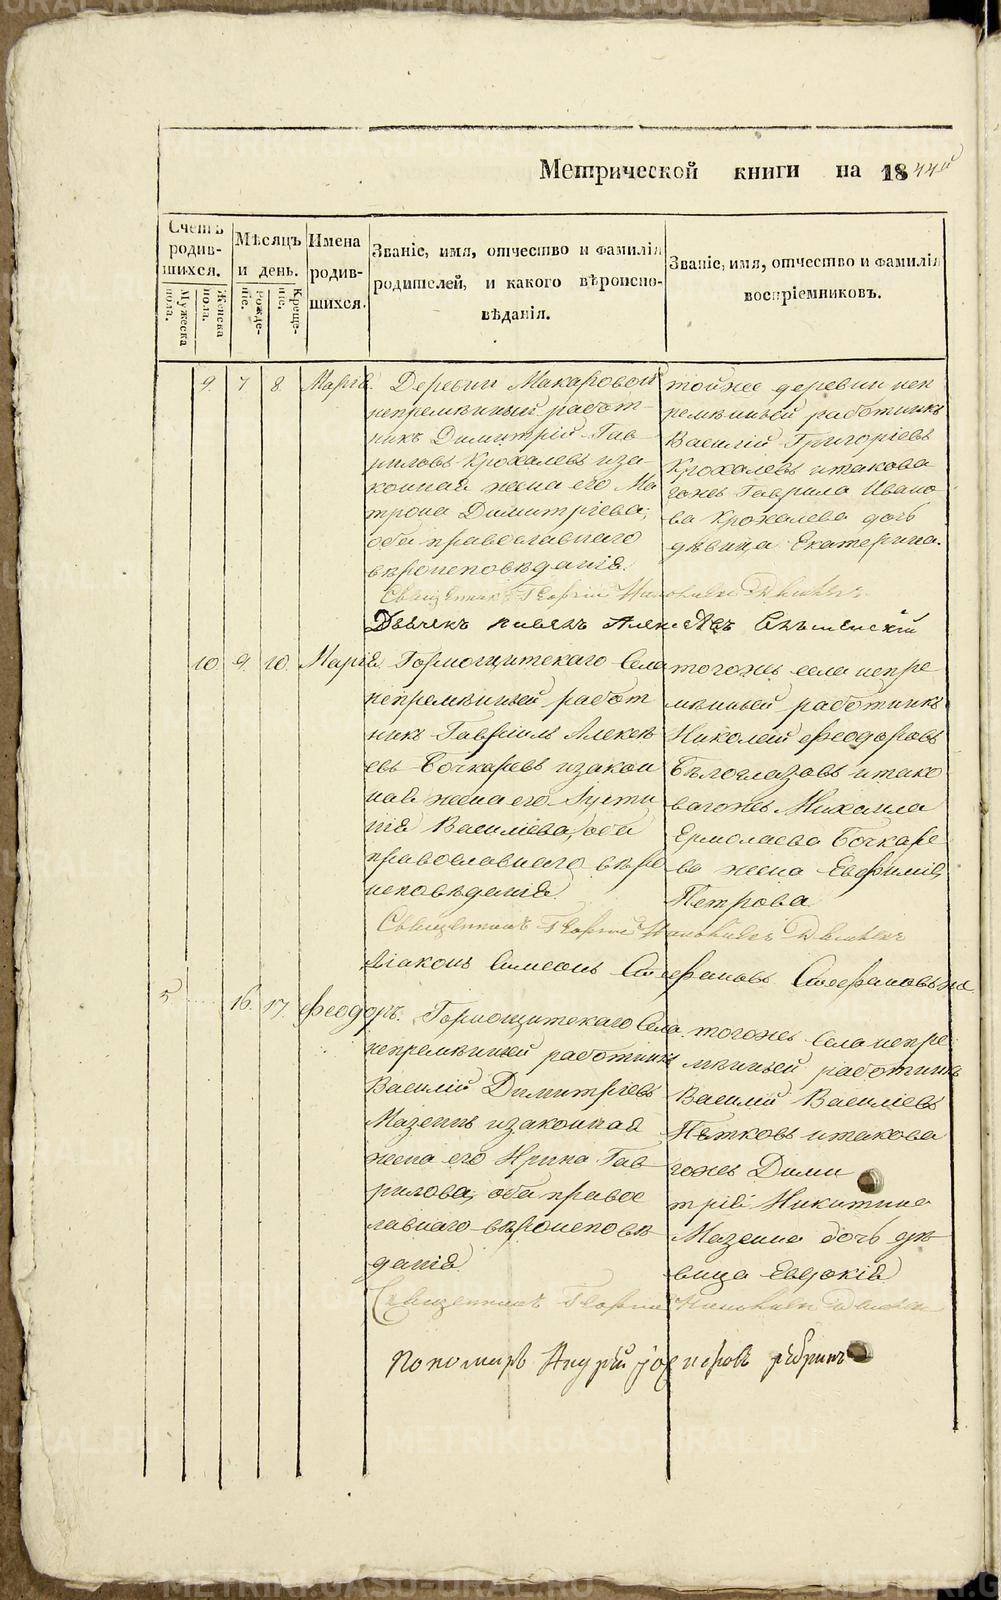 Метрической книги на 1844й
Счетъ родив-шихся.
Мужеска пола.
Женска пола.
Мѣсяцъ и день.
рожде-ніе.
Креще-ніе.
Имена родив-шихся.
Званіе, имя, отчество и фамилія
родителей, и какого вѣроиспо-
вѣданія.
Званіе, имя, отчество и фамилія
воспріемниковъ.
9. 7 8 Марія. Деревни Макаровой
непремѣнный работ-
никъ Димитрій Гав
риловъ Крохалевъ иза-
конная жена его Ма
трона Димитріева,
оба православнаго
вѣроисповѣданія.
тойже деревни неп
ремѣнный работникъ
Василій Григорьевъ
Крохалевъ итакова
гожъ Гаврила Ивано
ва Крохалева дочь
дѣвица Екатерина.
Священникъ Георгій
10 9 10. Марія. Горнощитскаго Села
непремѣнный работ
никъ Гавріилъ Алексѣ
евъ Бочкаревъ изакон
ная жена его Іусти
нія Василіева, оба
православнаго вѣро
исповѣданія
тогожъ села непре
мѣнный работникъ
Николай Феодоровъ
Бѣлоглазовъ итако
вагожъ Михаила
Ермолаева Бочкаре
ва жена Евфимія
Петрова
Священникъ Георгій
Діаконъ Симеонъ Стефановъ
5 16. 17. Феодоръ. Горнощитскаго Села
непремѣнный работникъ
Василій Димитріевъ
Мазеинъ изаконная
жена его Ирина Гав
рилова, оба правос
лавнаго вѣроисповѣ
данія
тогожъ Села непре
мѣнный работникъ
Василій Василіевъ
Пѣтковъ итакова
гожъ Дими
трія Никитина
Мазеина дочь дѣ
вица Евдокія
Священникъ Георгій
Пономарь
METRIKI.GASO-URAL.RU